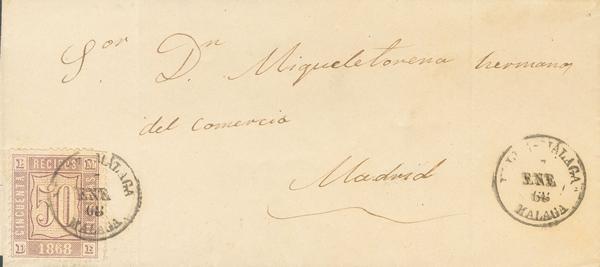 Sor Dn Migueletorena hermanos
del Comercio
Madrid
RECIBOS
CINCUENTA
50
1868
MALAGA
ENE
68
MALAGA
MALAGA
ENE
68
MALAGA